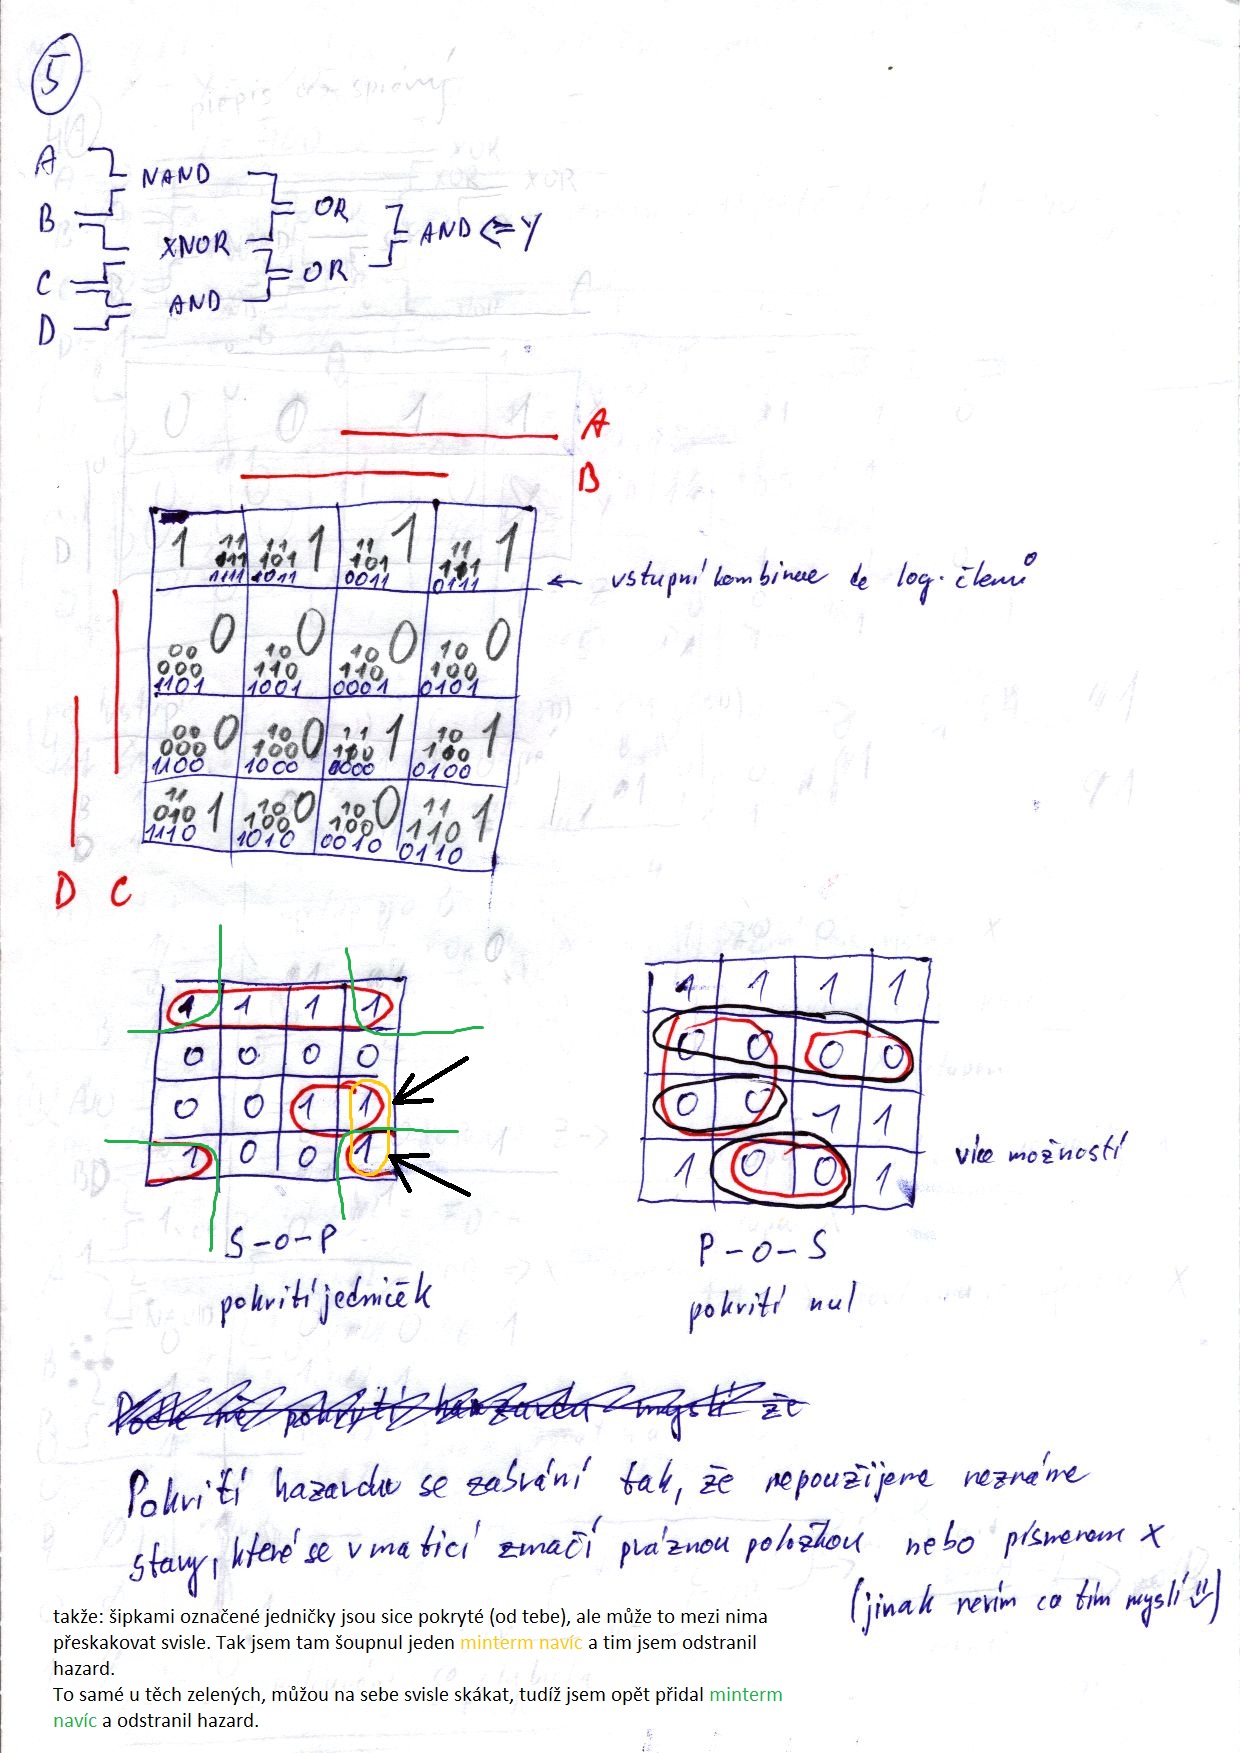 5
A
NAND
B
OR
XNOR
AND <= Y
C
OR
AND
D
A
B
1 11 111 1111 | 11 101 1011 1 | 11 101 0011 1 | 11 111 0111 1
← vstupní kombinace do log. členů
00 000 1101 0 | 10 110 1001 0 | 10 110 0001 0 | 10 100 0101 0
00 000 1100 0 | 10 100 1000 0 | 11 110 0000 1 | 10 100 0100 1
11 010 1110 1 | 10 100 1010 0 | 10 100 0010 0 | 11 110 0110 1
D C
1 1 1 1
0 0 0 0
0 0 1 1
1 0 0 1
S-O-P
pokrití jedniček
1 1 1 1
0 0 0 0
0 0 1 1
1 0 0 1
více možností
P-O-S
pokrití nul
Pokrití hazardu se zabrání tak, že nepoužijeme neznáme
stavy, které se v matici značí práznou položkou nebo písmenem X
(jinak nevím co tím myslí)
takže: šipkami označené jedničky jsou sice pokryté (od tebe), ale může to mezi nima
přeskakovat svisle. Tak jsem tam šoupnul jeden minterm navíc a tim jsem odstranil
hazard.
To samé u těch zelených, můžou na sebe svisle skákat, tudíž jsem opět přidal minterm
navíc a odstranil hazard.